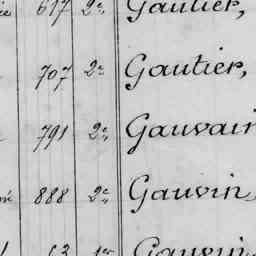 617 2e Gautier,
707 2e Gautier,
791 2e Gauvain
888 2e Gauvin,
1er Gauvin